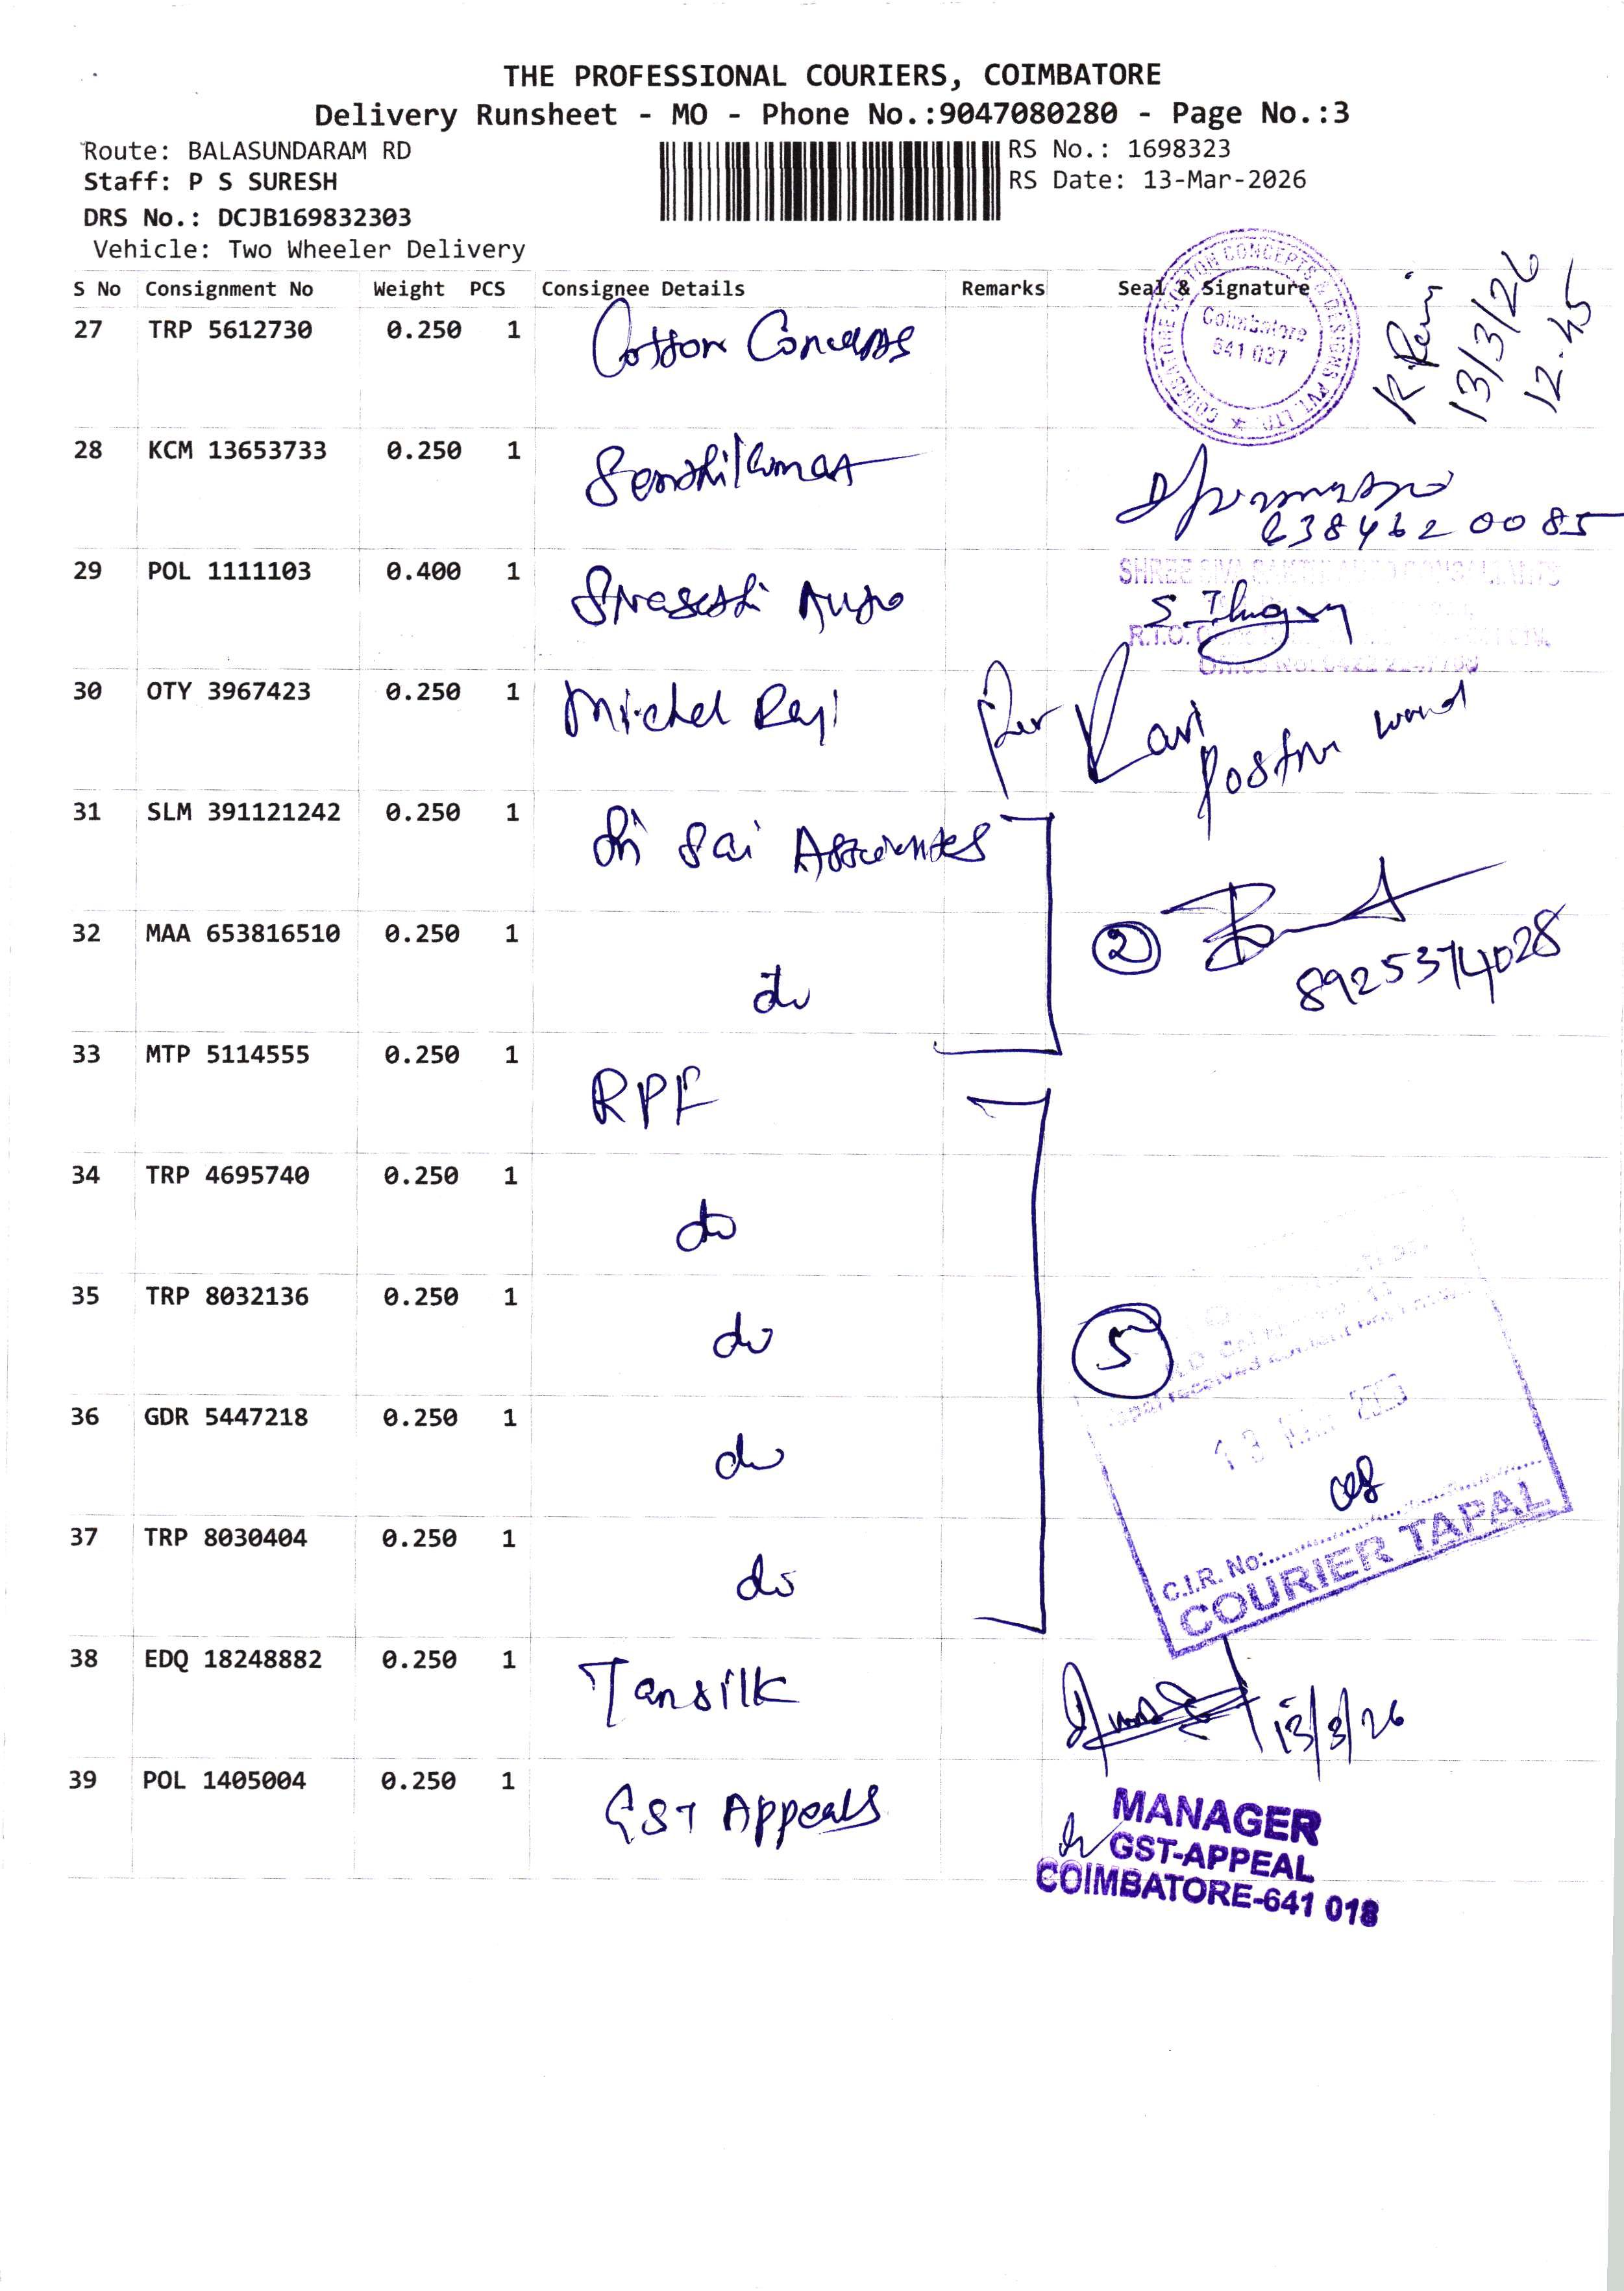 THE PROFESSIONAL COURIERS, COIMBATORE
Delivery Runsheet - MO - Phone No.:9047080280 - Page No.:3
Route: BALASUNDARAM RD
Staff: P S SURESH
DRS No.: DCJB169832303
Vehicle: Two Wheeler Delivery
RS No.: 1698323
RS Date: 13-Mar-2026
S No Consignment No Weight PCS Consignee Details Remarks Seal & Signature
27 TRP 5612730 0.250 1 Cotton Concepts
Coimbatore
641 037
13/3/26
12.45
28 KCM 13653733 0.250 1 Senthilkumar
6384620085
29 POL 1111103 0.400 1
SHREE
R.T.O.
30 OTY 3967423 0.250 1 Michel Raj
Ravi
31 SLM 391121242 0.250 1 Sri Sai Associates
32 MAA 653816510 0.250 1 do
2
8925374028
33 MTP 5114555 0.250 1 RPF
34 TRP 4695740 0.250 1 do
35 TRP 8032136 0.250 1 do
5
36 GDR 5447218 0.250 1 do
37 TRP 8030404 0.250 1 do
C.I.R. No:
COURIER TAPAL
38 EDQ 18248882 0.250 1 Tansilk
13/3/26
39 POL 1405004 0.250 1 GST Appeals
MANAGER
GST-APPEAL
COIMBATORE-641 018